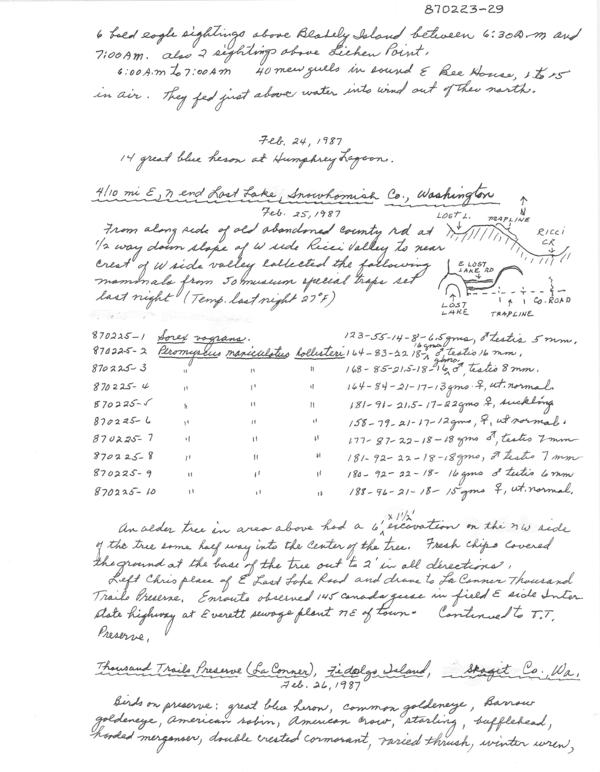 870223-29
6 bald eagle sightings above Blakely Island between 6:30A.m and
7:00AM. also 2 sightings above Lichen Point.
6:00A.m to 7:00AM 40 mew gulls in sound E Bee House, 1 to 15
in air. They fed just above water into wind out of the north.
Feb. 24, 1987
14 great blue heron at Humphrey Lagoon.
4/10 mi E, N end Lost Lake, Snowhomish Co., Washington
Feb. 25, 1987
From along side of old abandoned county rd at
1/2 way down slope of W side Ricci Valley to near
crest of W side valley collected the following
mammals from 50 museum special traps set
last night (Temp. last night 27°F)
N
LOST L.
TRAPLINE
RICCI
CR
E LOST
LAKE RD
LOST
LAKE
TRAPLINE
CO. ROAD
870225-1 Sorex vagrans. 123-55-14-8-6.5gms, ♂ testis 5 mm.
870225-2 Peromyscus maniculatus hollisteri 164-83-22-18-16gms ♂, testis 16 mm.
870225-3 " " " 168-85-21.5-18-16 gms. ♂, testis 8 mm.
870225-4 " " " 164-84-21-17-13gms. ♀, ut. normal.
870225-5 " " " 181-91-21.5-17-22gms ♀, suckling
870225-6 " " " 158-79-21-17-12gms, ♀, ut normal.
870225-7 " " " 177-87-22-18-18gms ♂, testis 7mm
870225-8 " " " 181-92-22-18-18gms, ♂ testis 7 mm
870225-9 " " " 180-92-22-18-16gms ♂ testis 6mm
870225-10 " " " 188-96-21-18-15gms ♀, ut. normal.
An alder tree in area above had a 6' x 1 1/2' excovation on the NW side
of the tree some half way into the center of the tree. Fresh chips covered
the ground at the base of the tree out to 2' in all directions.
Left Chris place of E Last Lake Road and drove to La Conner Thousand
Trails Preserve. Enroute observed 145 canada geese in field E side Inter
state highway at Everett sewage plant NE of town. Continued to T.T.
Preserve.
Thousand Trails Preserve (La Conner), Fidolgo Island, Skagit Co., Wa.
Feb. 26, 1987
Birds on preserve: great blue heron, common goldeneye, Barrow
goldeneye, American robin, American crow, starling, bufflehead,
hooded merganser, double crested cormorant, varied thrush, winter wren,